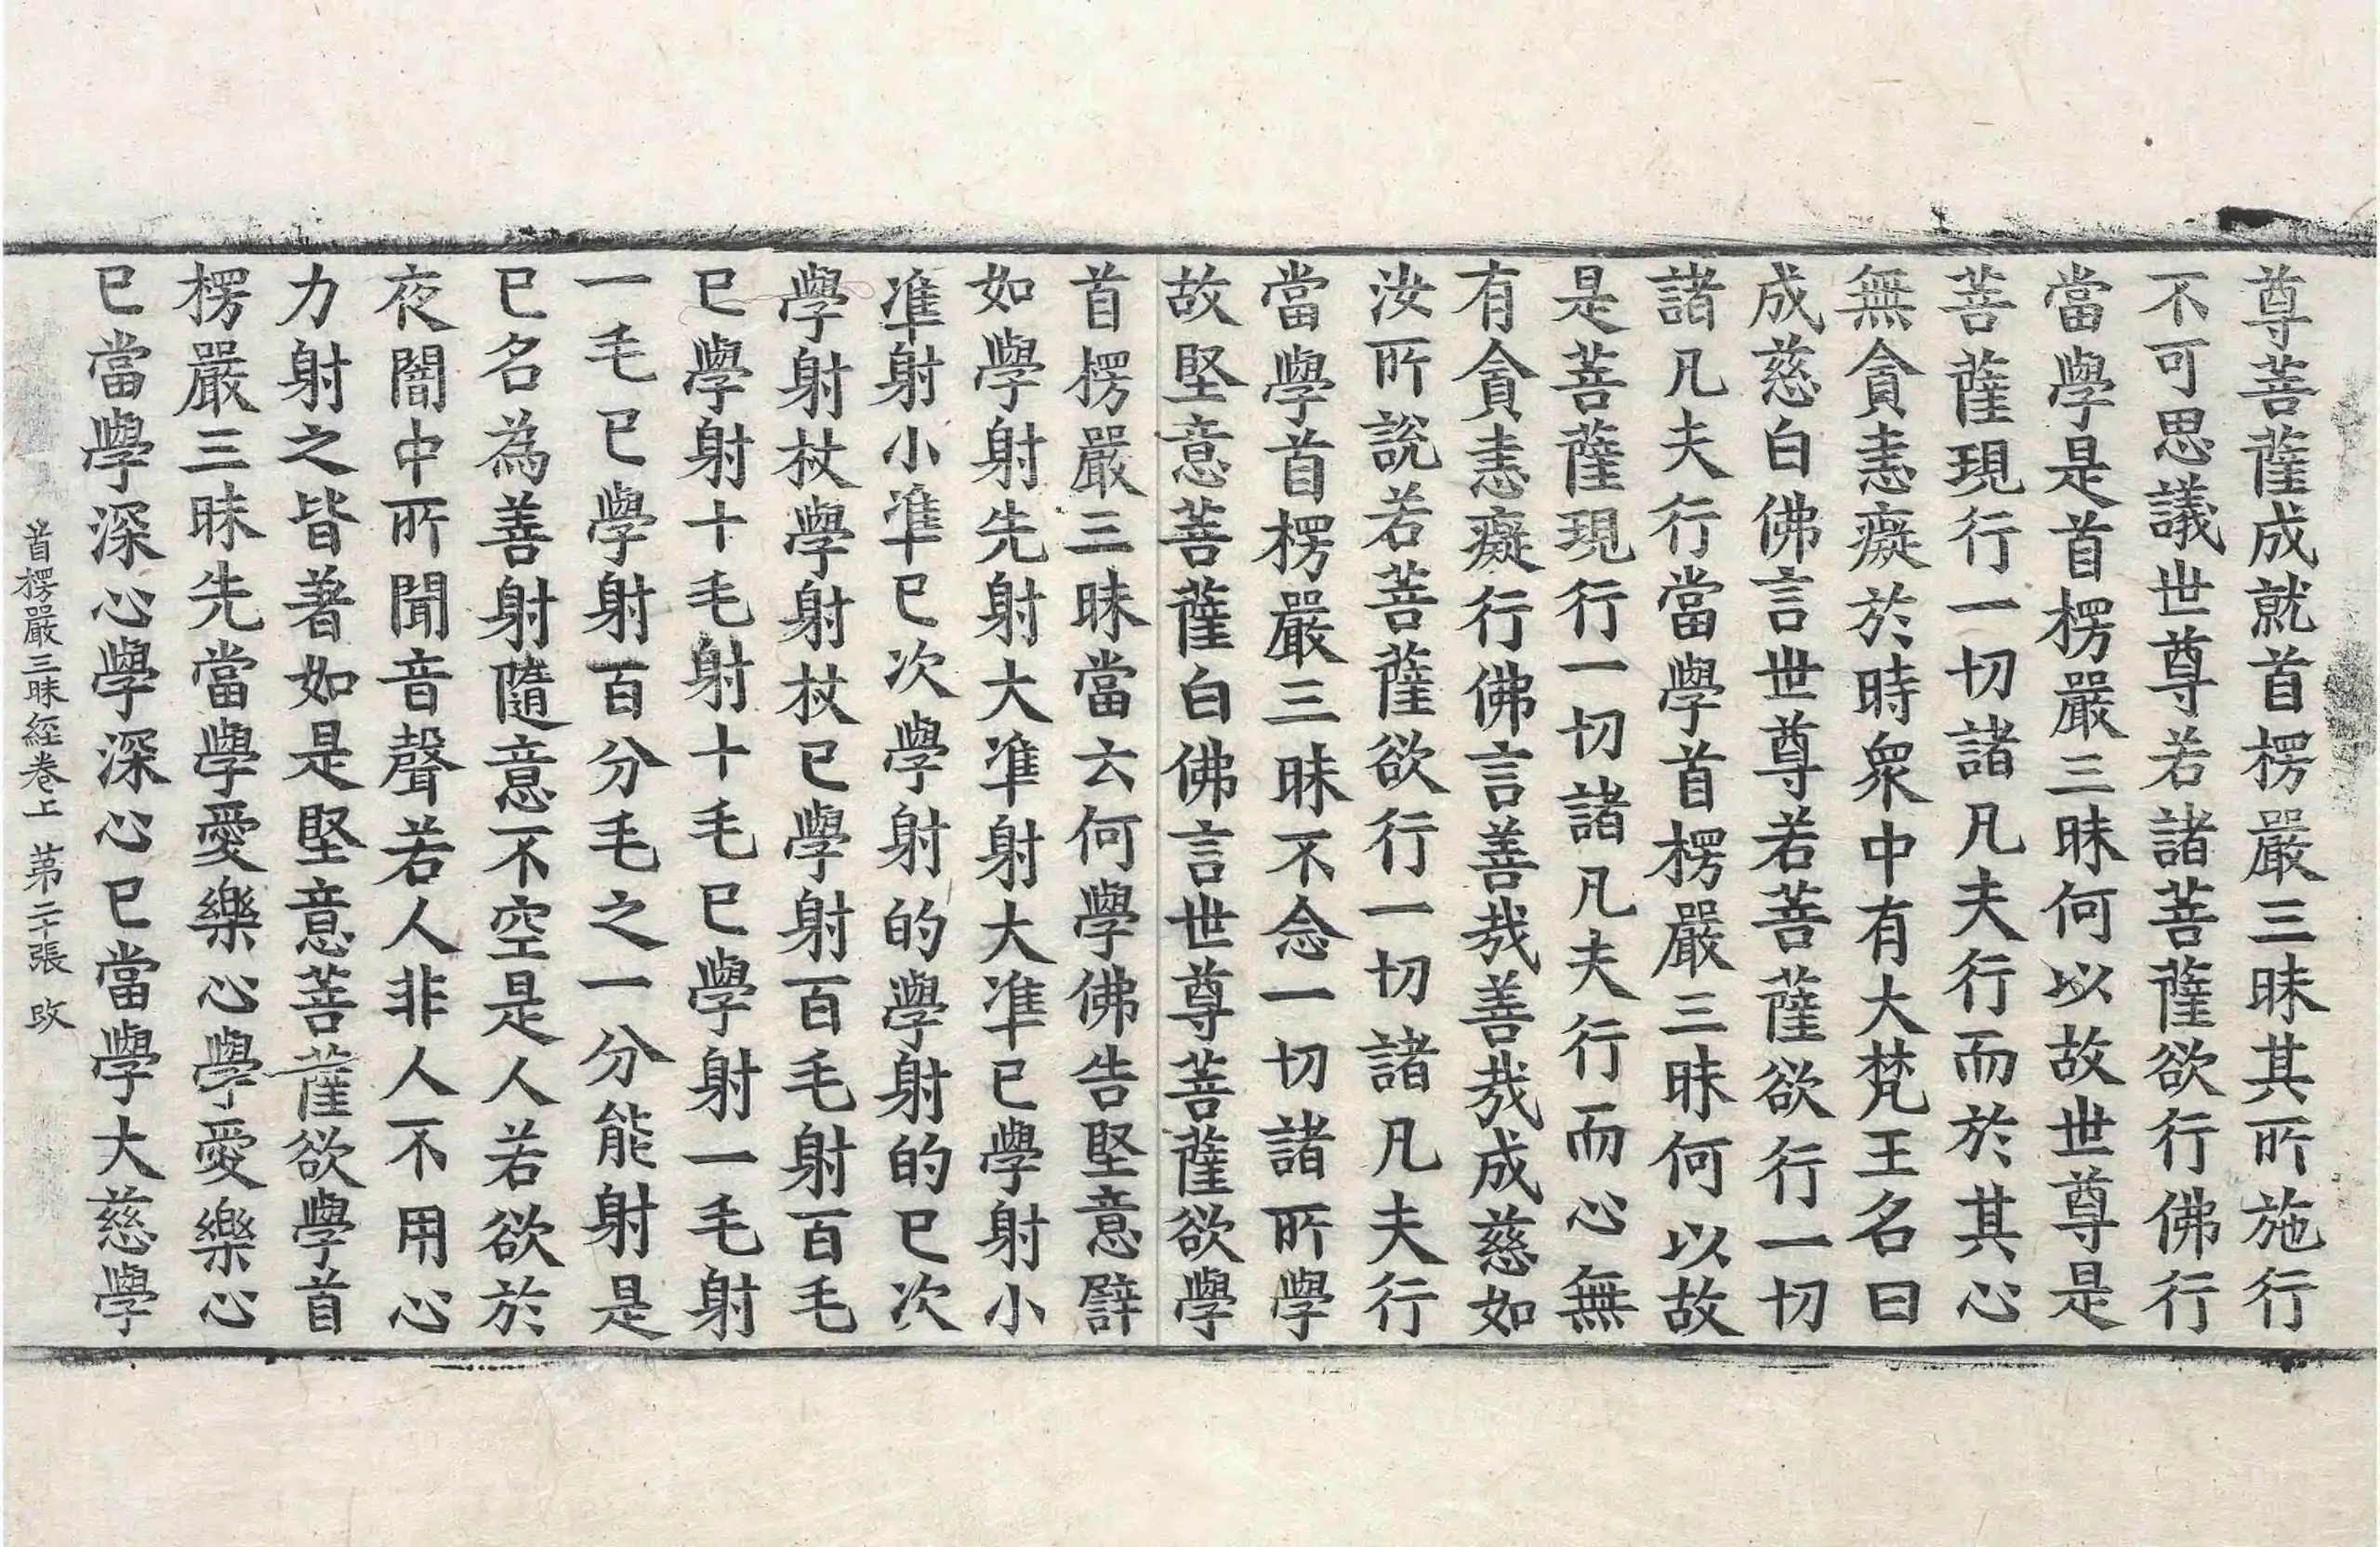 尊菩薩成就首楞嚴三昧其所施行
不可思議世尊若諸菩薩欲行佛行
當學是首楞嚴三昧何以故世尊是
菩薩現行一切諸凡夫行而於其心
無貪恚癡於時衆中有大梵王名曰
成慈白佛言世尊若菩薩欲行一切
諸凡夫行當學首楞嚴三昧何以故
是菩薩現行一切諸凡夫行而心無
有貪恚癡行佛言善哉善哉成慈如
汝所說若菩薩欲行一切諸凡夫行
當學首楞嚴三昧不念一切諸所學
故堅意菩薩白佛言世尊菩薩欲學
首楞嚴三昧當云何學佛告堅意譬
如學射先射大準射大準已學射小
準射小準已次學射的學射的已次
學射杖學射杖已學射百毛射百毛
已學射十毛射十毛已學射一毛射
一毛已學射百分毛之一分能射是
已名為善射隨意不空是人若欲於
夜闇中所聞音聲若人非人不用心
力射之皆著如是堅意菩薩欲學首
楞嚴三昧先當學愛樂心學愛樂心
已當學深心學深心已當學大慈學
首楞嚴三昧經卷上 第二十張 改